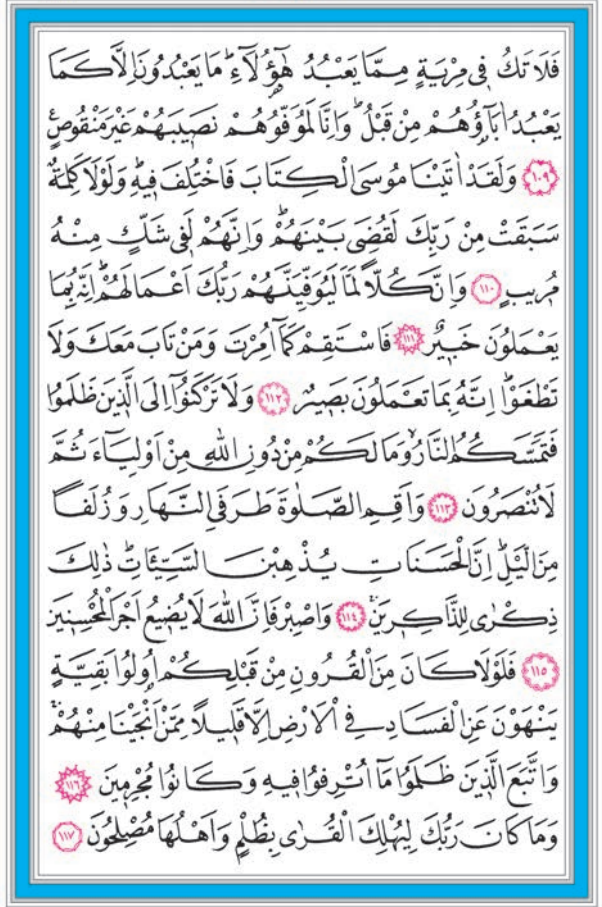 فَلَا تَكُ فٖى مِرْيَةٍ مِمَّا يَعْبُدُ هٰٓؤُ۬لَٓاءِۜ مَا يَعْبُدُونَ اِلَّا كَمَا
يَعْبُدُ اٰبَٓاؤُ۬هُمْ مِنْ قَبْلُۜ وَاِنَّا لَمُوَفُّوهُمْ نَصٖيبَهُمْ غَيْرَ مَنْقُوصٍࣖ
﴿١٠٩﴾ وَلَقَدْ اٰتَيْنَا مُوسَى الْكِتَابَ فَاخْتُلِفَ فٖيهِۜ وَلَوْلَا كَلِمَةٌ
سَبَقَتْ مِنْ رَبِّكَ لَقُضِىَ بَيْنَهُمْۜ وَاِنَّهُمْ لَفٖى شَكٍّ مِنْهُ
مُرٖيبٍ ﴿١١٠﴾ وَاِنَّ كُلًّا لَمَّا لَيُوَفِّيَنَّهُمْ رَبُّكَ اَعْمَالَهُمْۜ اِنَّهُ بِمَا
يَعْمَلُونَ خَبٖيرٌ ﴿١١١﴾ فَاسْتَقِمْ كَمَٓا اُمِرْتَ وَمَنْ تَابَ مَعَكَ وَلَا
تَطْغَوْاۜ اِنَّهُ بِمَا تَعْمَلُونَ بَصٖيرٌ ﴿١١٢﴾ وَلَا تَرْكَنُٓوا اِلَى الَّذٖينَ ظَلَمُوا
فَتَمَسَّكُمُ النَّارُۙ وَمَا لَكُمْ مِنْ دُونِ اللّٰهِ مِنْ اَوْلِيَٓاءَ ثُمَّ
لَا تُنْصَرُونَ ﴿١١٣﴾ وَاَقِمِ الصَّلٰوةَ طَرَفَىِ النَّهَارِ وَزُلَفًا
مِنَ الَّيْلِۜ اِنَّ الْحَسَنَاتِ يُذْهِبْنَ السَّيِّـَٔاتِۜ ذٰلِكَ
ذِكْرٰى لِلذَّاكِرٖينَۚ ﴿١١٤﴾ وَاصْبِرْ فَاِنَّ اللّٰهَ لَا يُضٖيعُ اَجْرَ الْمُحْسِنٖينَ
﴿١١٥﴾ فَلَوْلَا كَانَ مِنَ الْقُرُونِ مِنْ قَبْلِكُمْ اُو۬لُوا بَقِيَّةٍ
يَنْهَوْنَ عَنِ الْفَسَادِ فِى الْاَرْضِ اِلَّا قَلٖيلًا مِمَّنْ اَنْجَيْنَا مِنْهُمْۚ
وَاتَّبَعَ الَّذٖينَ ظَلَمُوا مَٓا اُتْرِفُوا فٖيهِ وَكَانُوا مُجْرِمٖينَ ﴿١١٦﴾
وَمَا كَانَ رَبُّكَ لِيُهْلِكَ الْقُرٰى بِظُلْمٍ وَاَهْلُهَا مُصْلِحُونَ ﴿١١٧﴾